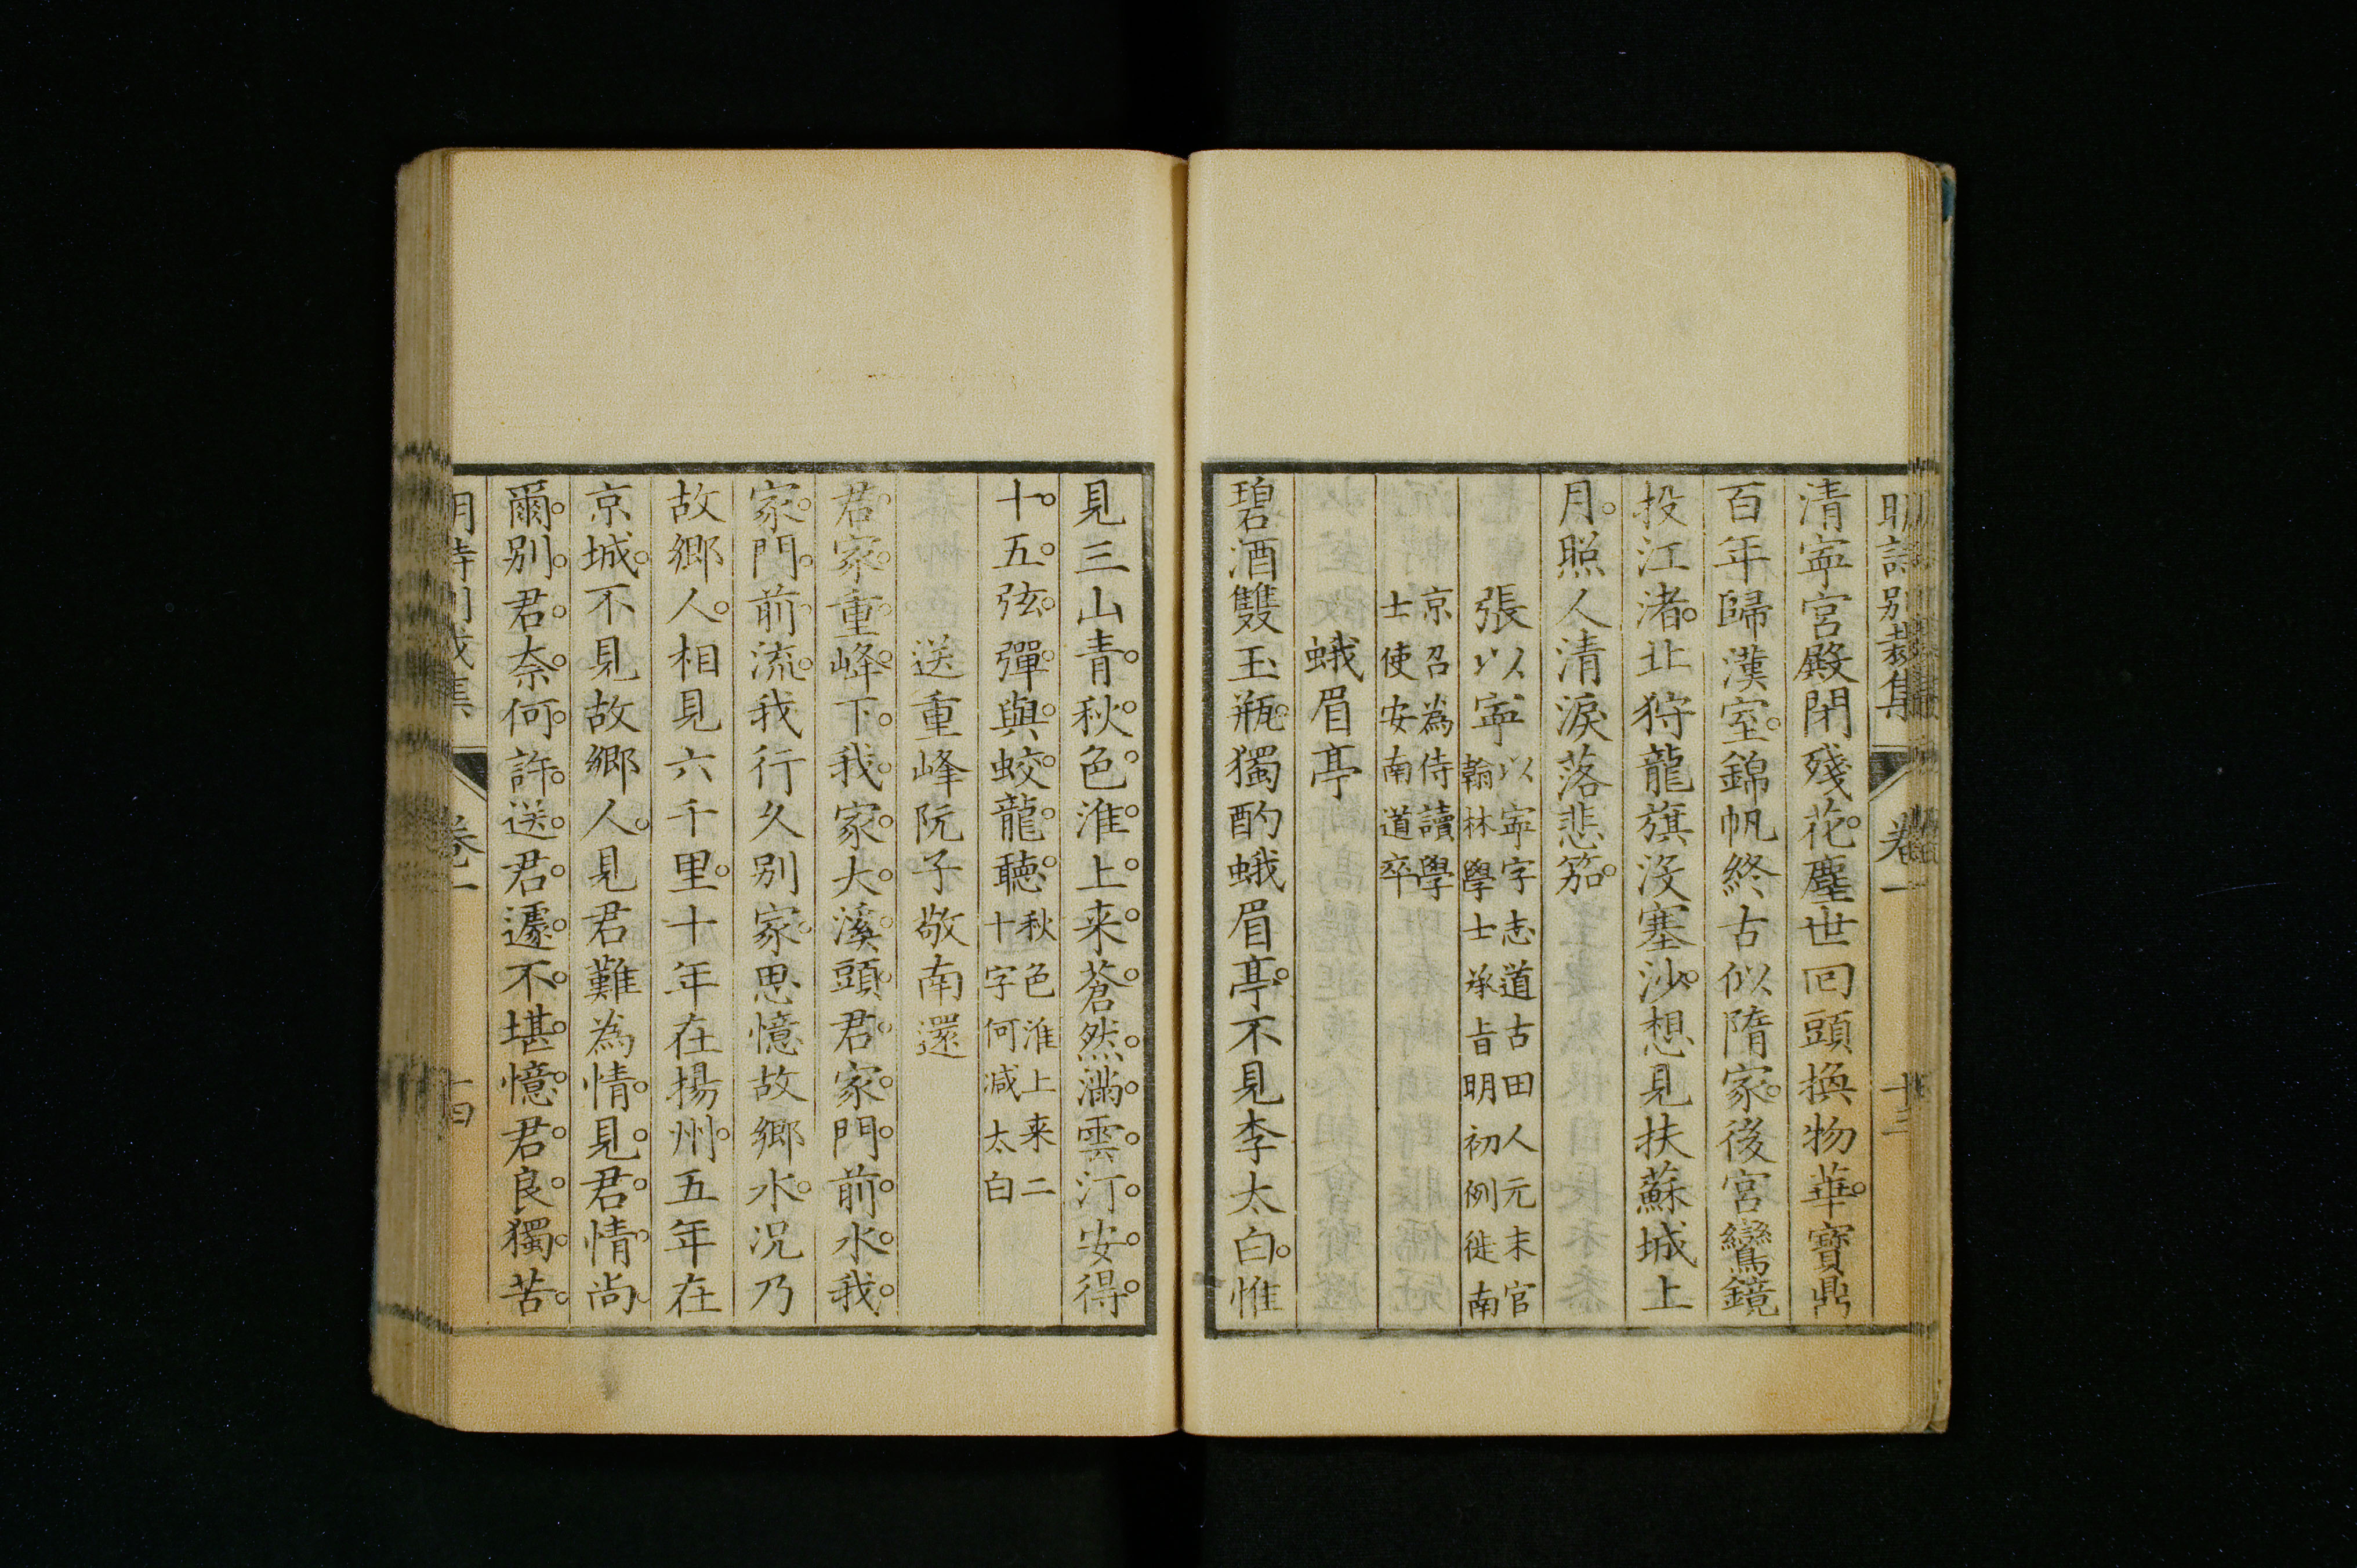 明詩別裁集 卷一 十三
清寧宮殿閉殘花塵世回頭換物華寶鼎
百年歸漢室錦帆終古似隋家後宮鸞鏡
投江渚北狩龍旗沒塞沙想見扶蘇城上
月照人清淚落悲笳
張以寧以寧字志道古田人元末官
翰林學士承旨明初例徙南
京召為侍讀學
士使安南道卒
蛾眉亭
碧酒雙玉瓶獨酌蛾眉亭不見李太白惟
見三山青秋色淮上来蒼然滿雲汀安得
十五弦彈與蛟龍聽秋色淮上来二
十字何减太白
送重峰阮子敬南還
君家重峰下我家大溪頭君家門前水我
家門前流我行久別家思憶故鄉水況乃
故鄉人相見六千里十年在揚州五年在
京城不見故鄉人見君難為情見君情尚
爾別君奈何許送君遽不堪憶君良獨苦
明詩別裁集 卷一 十四